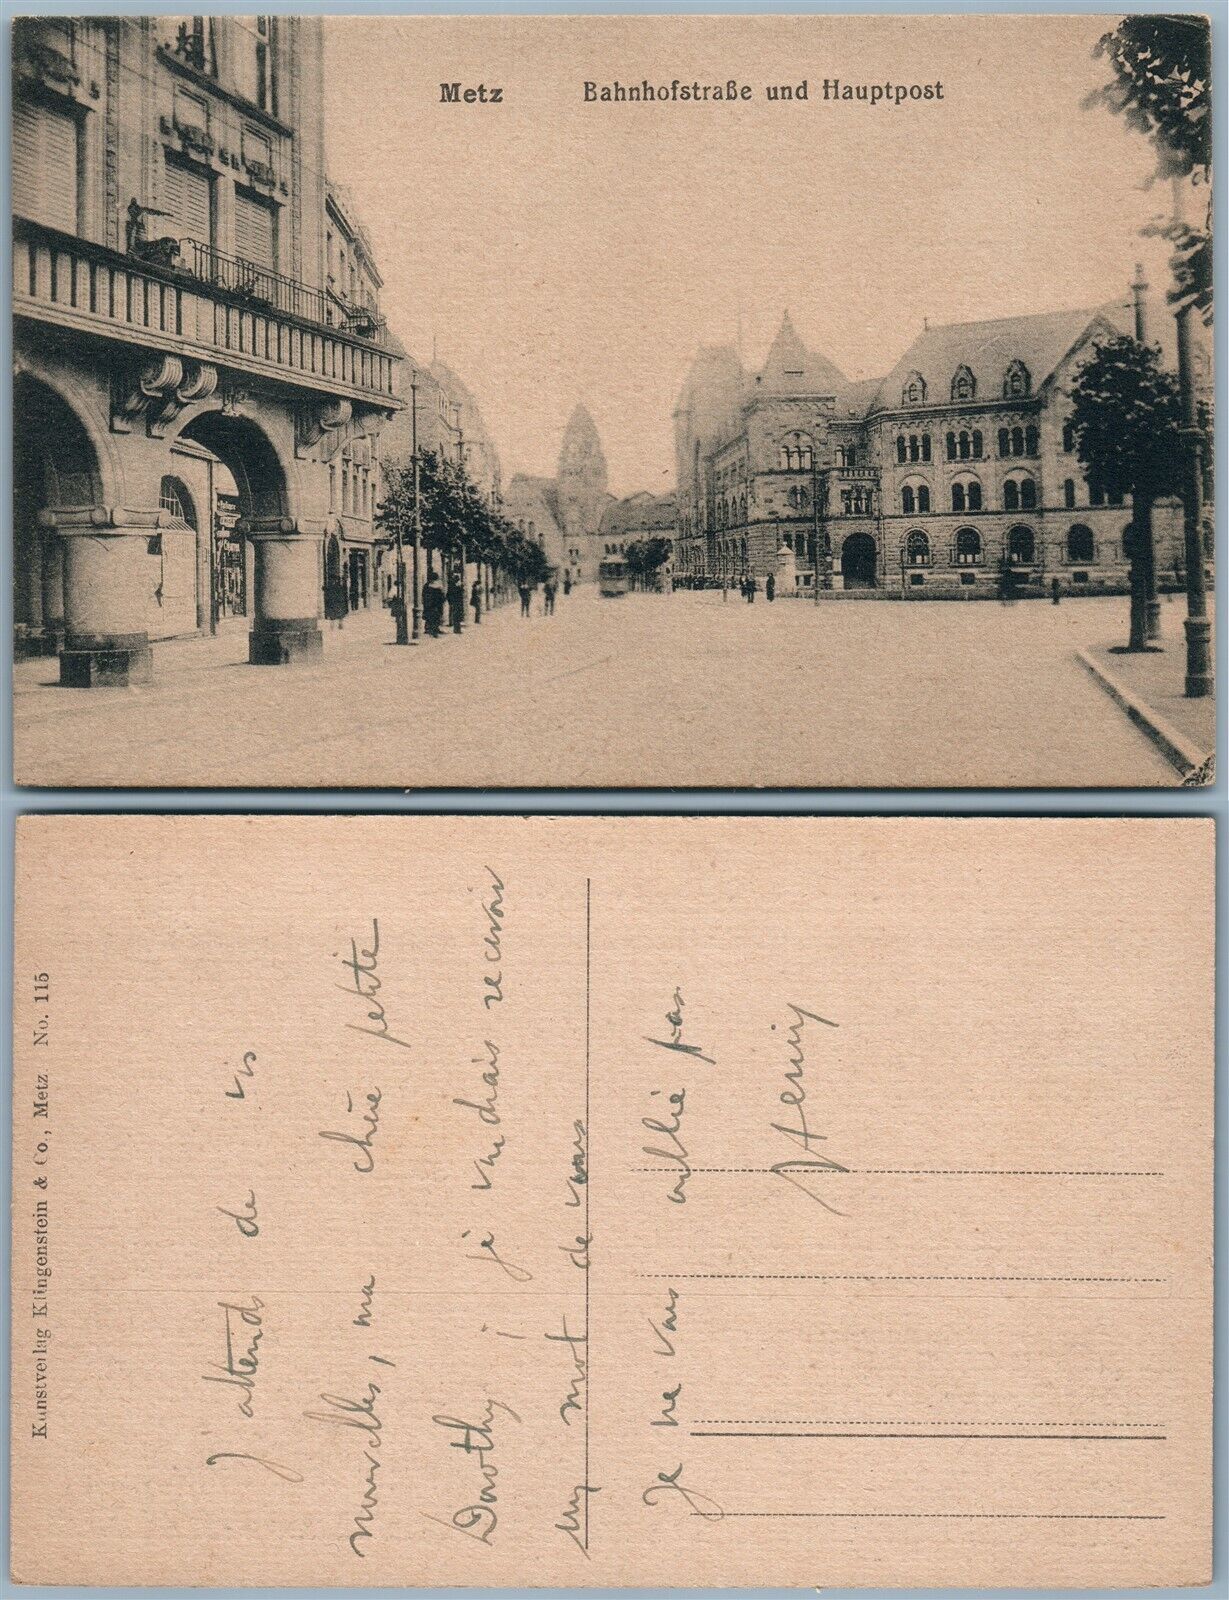 Metz Bahnhofstraße und Hauptpost
Kunstverlag Klingenstein & Co., Metz No. 115
J'attends de vis
nouvelles, ma chère petite
Dorothy; je voudrais recevoir
un mot de vous
Je ne vous oublie pas
Henry